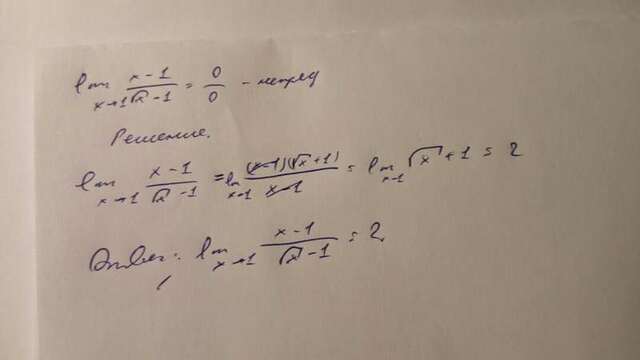 lim x→1 (x-1)/(√x-1) = 0/0 - неопред
Решение.
lim x→1 (x-1)/(√x-1) = lim x→1 (x-1)(√x+1)/(x-1) = lim x→1 √x+1 = 2
Ответ: lim x→1 (x-1)/(√x-1) = 2